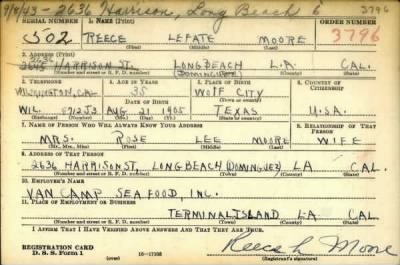 9/8/43 - 2636 Harrison, Long Beach 6 3796
SERIAL NUMBER 1. NAME (Print) ORDER NUMBER
502 REECE LEFATE MOORE 3796
(First) (Middle) (Last)
2. ADDRESS (Print)
2636
HARRISON ST. LONG BEACH L.A. CAL.
(DOMINGUEZ)
(Number and street or R. F. D. number) (Town) (County) (State)
3. TELEPHONE 4. AGE IN YEARS 5. PLACE OF BIRTH 6. COUNTRY OF CITIZENSHIP
WILMINGTON, CAL 35 WOLF CITY
DATE OF BIRTH (Town or county)
WIL. AUG 21 1905 TEXAS U.S.A.
(Exchange) (Number) (Mo.) (Day) (Yr.) (State or country)
7. NAME OF PERSON WHO WILL ALWAYS KNOW YOUR ADDRESS 8. RELATIONSHIP OF THAT PERSON
MRS. ROSE LEE MOORE WIFE
(Mr., Mrs., Miss) (First) (Middle) (Last)
9. ADDRESS OF THAT PERSON
2636 HARRISON ST, LONG BEACH (DOMINGUEZ) LA CAL.
(Number and street or R. F. D. number) (Town) (County) (State)
10. EMPLOYER'S NAME
VAN CAMP SEAFOOD, INC.
11. PLACE OF EMPLOYMENT OR BUSINESS
TERMINAL ISLAND L.A. CAL.
(Number and street or R. F. D. number) (Town) (County) (State)
I AFFIRM THAT I HAVE VERIFIED ABOVE ANSWERS AND THAT THEY ARE TRUE.
REGISTRATION CARD
D. S. S. Form 1 16-17105 Reece L Moore
(over) (Registrant's signature)